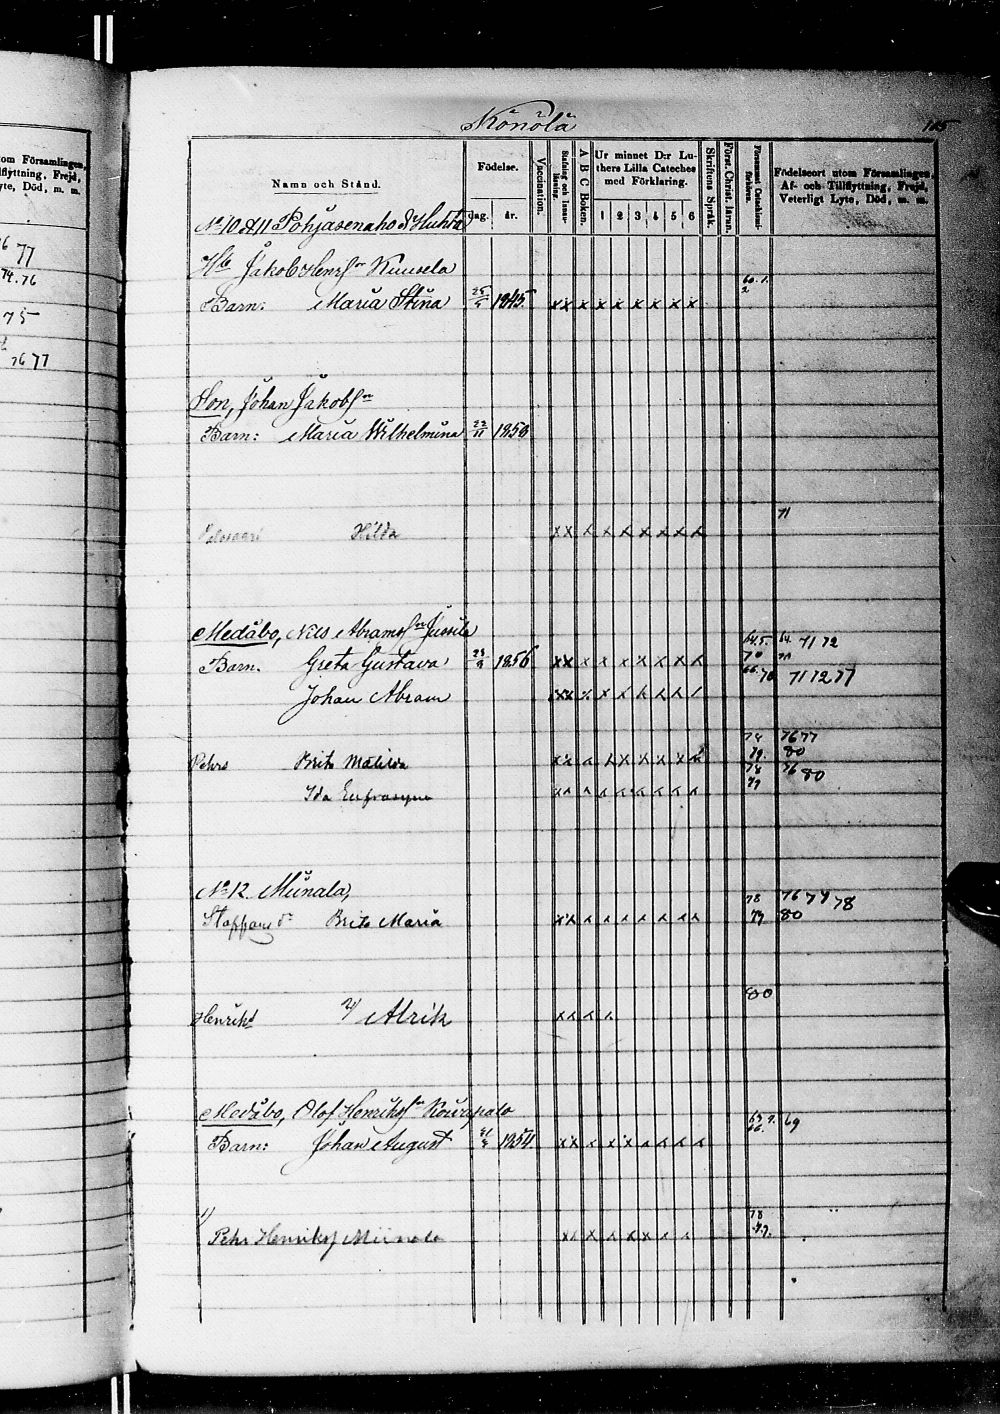 Könölä
125
om Församlingen,
Tillflyttning, Frejd,
Lyte, Död, m. m.
77
74.76
75
76 77
Namn och Stånd.
Födelse.
dag.
år.
Vaccination.
Stafning och Innanläsning.
A B C Boken.
Ur minnet D:r Luthers Lilla Cateches med Förklaring.
1 2 3 4 5 6
Skriftens Språk.
Först. Christ. läran.
Försummat Catechismiförhören.
Födelseort utom Församlingen, Af- och Tillflyttning, Frejd, Veterligt Lyte, Död, m. m.
No 10 & 11 Pohjasenaho & Huhta
Jakob Henrss:n Kuusela
Barn: Maria Stina 1845. x x x x x x x x x
Son, Johan Jakobss:n
Barn: Maria Wilhelmina 22/11 1853
71
Hilda x x x x x x x x x
Medåbo, Nils Abramss:n Jussila
64.5. 64. 71 72
Barn. Greta Gustava 1856 x x x x x x x x x 70
Johan Abram x x x x x x x x 71 72 77
78 76 77
Pehrs Brita Matilda x x x x x x x x x 79. 80
78 76 80
Ida Eufrosyne x x x x x x x x x 79
No 12. Miinala,
78 76 77 78
Staffans d:r Brita Maria x x x x x x x x x 79 80
80
Henriks 2/ Alrik x x x x
Medåbo, Olof Henrikss:n Kourapalo
69
Barn: Johan August 1854. x x x x x x x x x 66.
1/
78
Pehr Henrikss Miinala x x x x x x x 79.